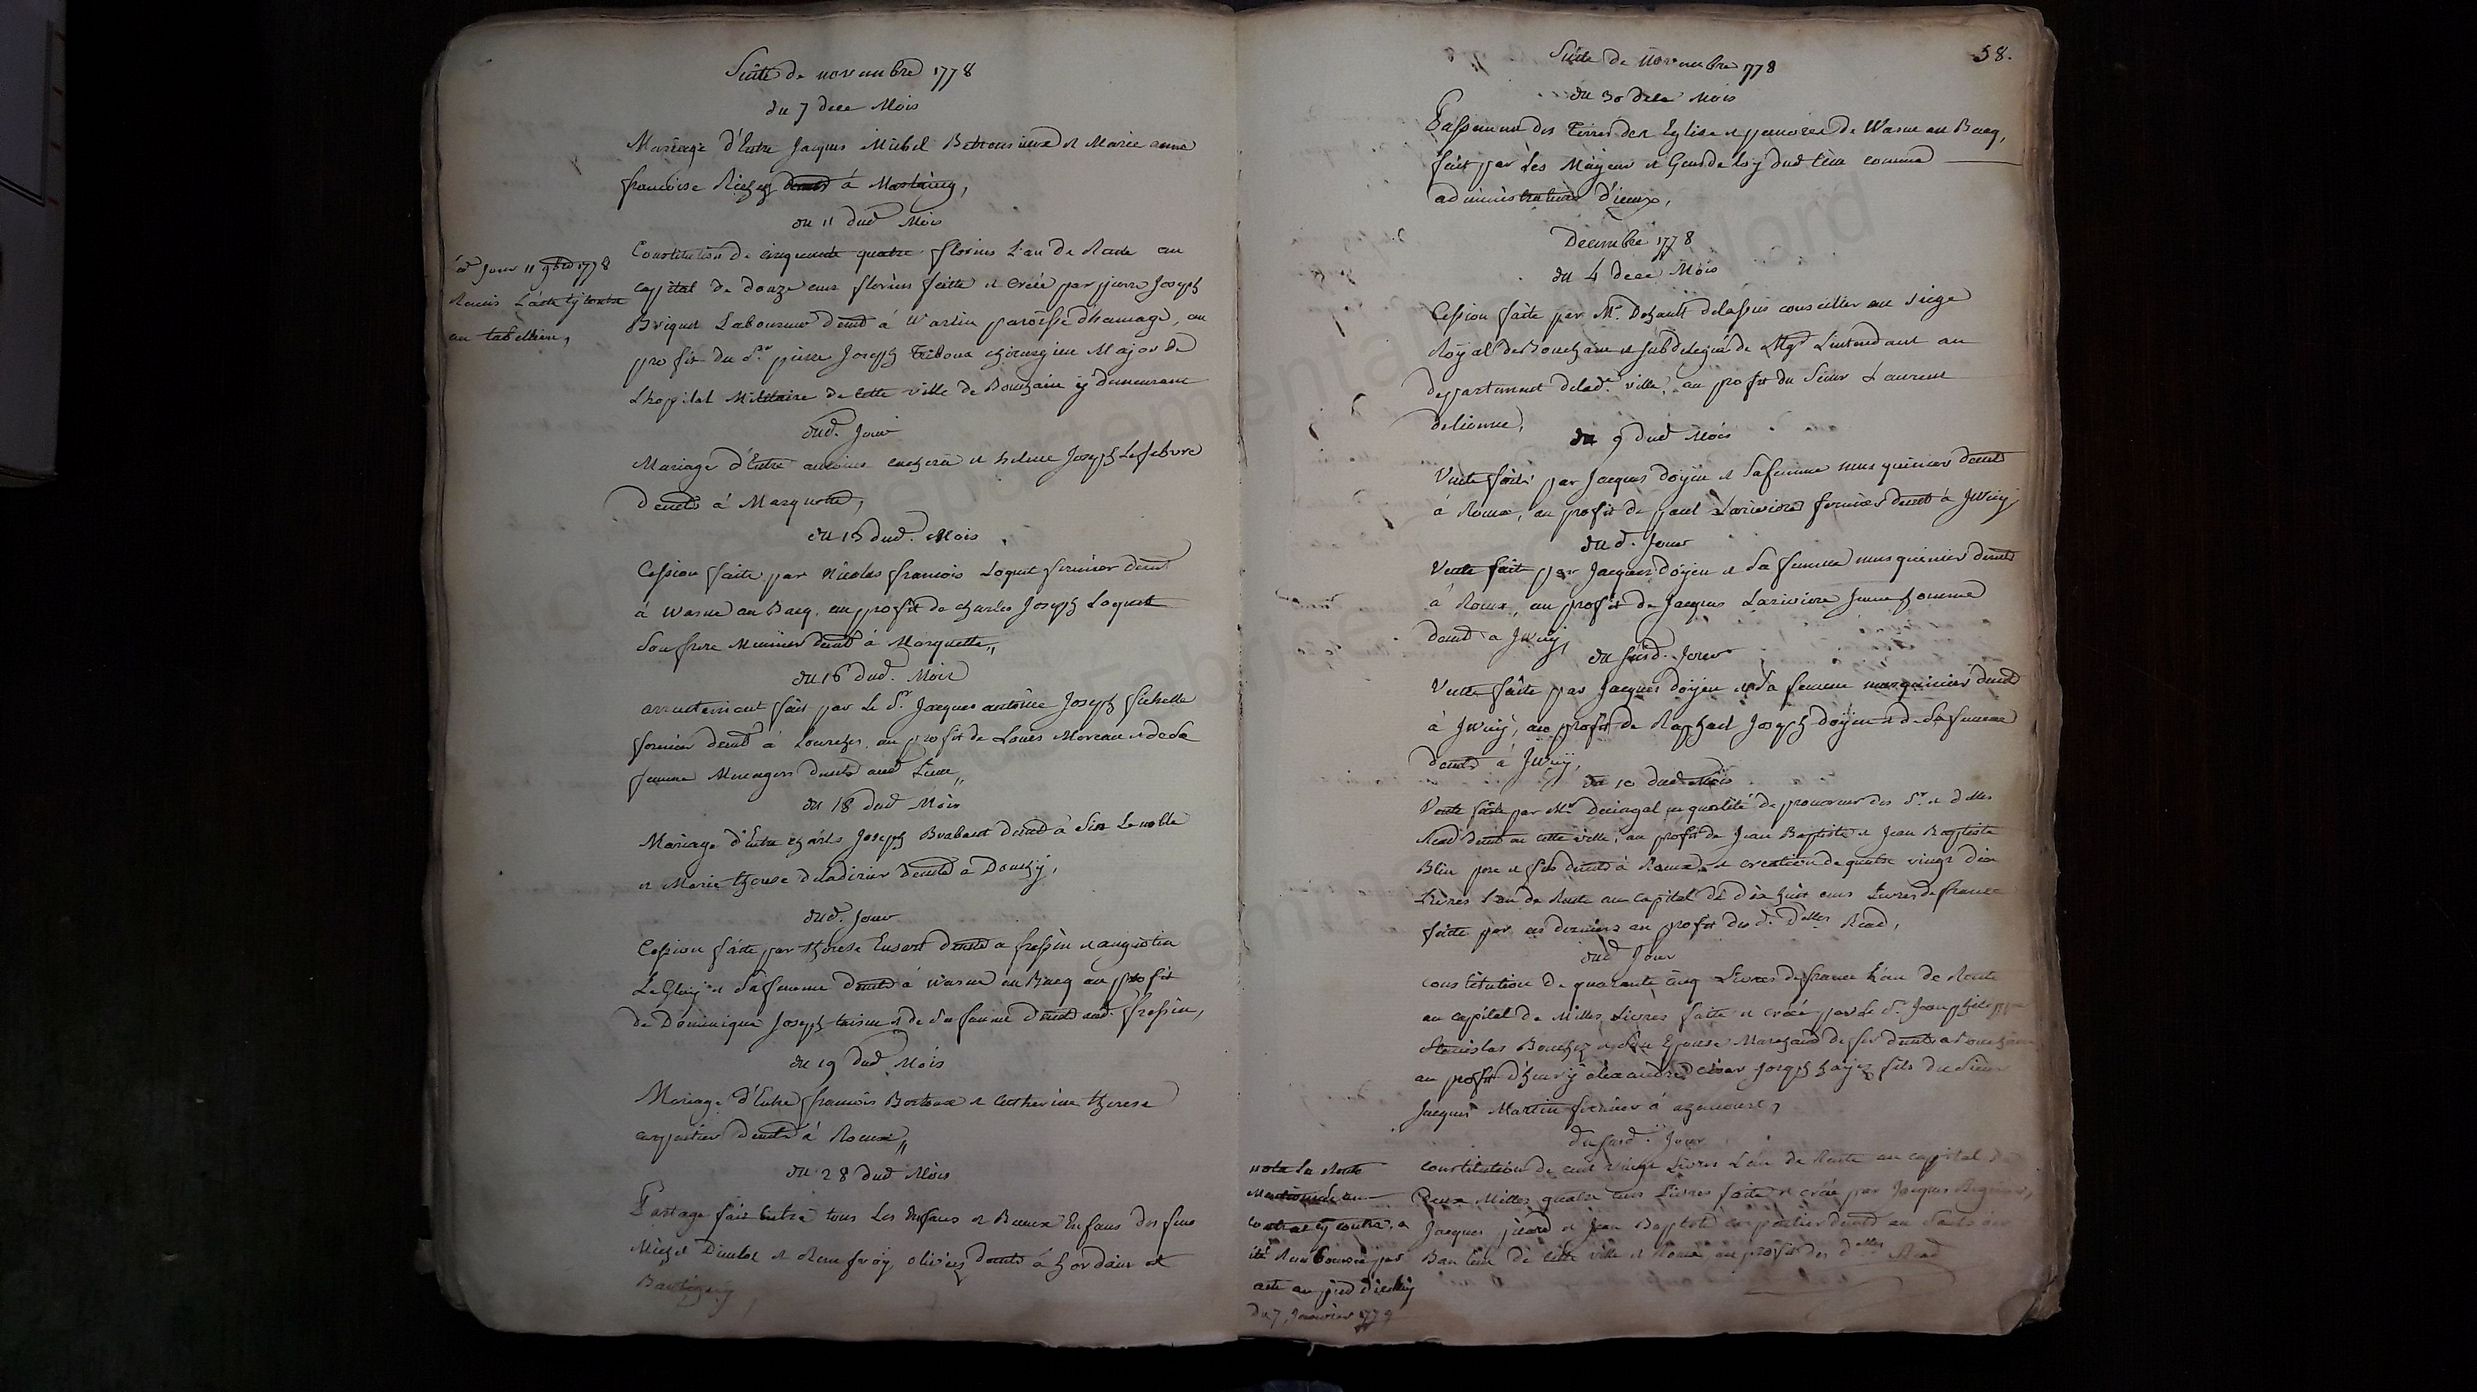 Suite de novembre 1778
du 7 dece Mois
Mariage d'Entre Jacques Michel Betrousieux et Marie anne
francoise Richez demts à Mastaing,
du 11 dud Mois
Constitution de cinquante quatre florins L'an de Rente au
capital de douze cens florins faitte et créée par pierre Joseph
Briquet Laboureur demt à Warlin paroisse dhamage, au
profit du Sr pierre Joseph Triboux chirurgien Major de
Lhopital Militaire de cette ville de Bouchain y demeurant
Led Jour 11 9bre 1778
Remis L'acte cy contre
au tabellion,
dud. Jour
Mariage d'Entre antoine et helene Joseph Lefebvre
demts à Marquette,
du 15 dud. Mois
Cession faite par Nicolas francois Loquet fermier demt
à Wasne au Bacq, au profit de charles Joseph Loquet
Son frere Meunier demt à Marquette,,
du 16 dud. Mois
arrentement fait par Le Sr. Jacques antoine Joseph fichelle
fermier demt à Lourches, au profit de Louis Moreau et de Sa
femme Menagers demts aud Lieu,,
du 18 dud Mois
Mariage d'Entre charles Joseph Brabant demt à Sin Le noble
et Marie therese deladiriere demte a Douchy,
dud. Jour
Cession faite par therese Ensart demte a fressin et augustin
Le Glay et Safemme demts à wasne au Bacq au profit
de Dominique Joseph et de Safemme demts aud. fressin,
du 19 dud Mois
Mariage d'Entre francois Bertoux et Catherine therese
carpentier demts à Rœux,,
du 28 dud Mois
Partage fait Entre tous Les Enfans et Beaux Enfans des feus
Michel Dimbot et Renfroy olivier demts à hordain et
Bantigny
Suite de Novembre 1778
58.
du 30 dece Mois
Passement des Terres der Eglise et pauvres de Wasne au Bacq,
fait par Les Mayeur et Gens de Loy dud Lieu comme
administrateurs d'iceux,
Decembre 1778
du 4 dece Mois
Cession faite par Mr. Dehault delassus conseiller au Siege
Royal de Bouchain et subdelegué de Mgr L'intendant au
departement delade ville, au profit du Sieur Laurent
delienne,
du 9 dud Mois
Vente faite par Jacques doyen et Safemme musquinier demts
à Rœux, au profit de paul Lariviere fermier demt à Jwuy
du d. Jour
Vente faite par Jacques doyen et Safemme musquinier demts
à Rœux, au profit de Jacques Lariviere Jeune homme
demt a Jwuy,
du susd. Jour
Vente faite par Jacques doyen et Sa femme musquinier demts
à Jwuy, au profit de Raphael Joseph doyen et de Safemme
demts à Jwuy,
du 10 dud Mois
Vente faite par Mr en qualité de procureur des Sr. et delles
Read demts en cette ville, au profit de Jean Baptiste et Jean Baptiste
Blin pere et fils demts à Rœux, et creation de quatre vingt dix
Livres L'an de Rente au capital de dix huit cens Livres de france
faite par ces derniers au profit desd. Delles Read,
dud Jour
constitution de quarante cinq Livres de france L'an de Rente
au capital de Milles Livres faite et créée par Le Sr. Jean philippe
Stanislas Bouchez et Son Epouse Marchand de fer demts a Bouchain
au profit d'henry alexandre César Joseph hayez fils du Sieur
Jacques Martin fermier à azincourt,
du susd. Jour
constitution de cent vingt Livres L'an de Rente au capital de
Deux Milles quatre cens Livres faite et créée par Jacques
Jacques picard et Jean Baptiste carpentier demts au
Banlieu de cette ville et Rœux, au profit des delles Read
nota La Rente
Mentionnée au
contrat cy contre, a
été Remboursée par
acte au pied d'icelluy
du 7 Janvier 1779